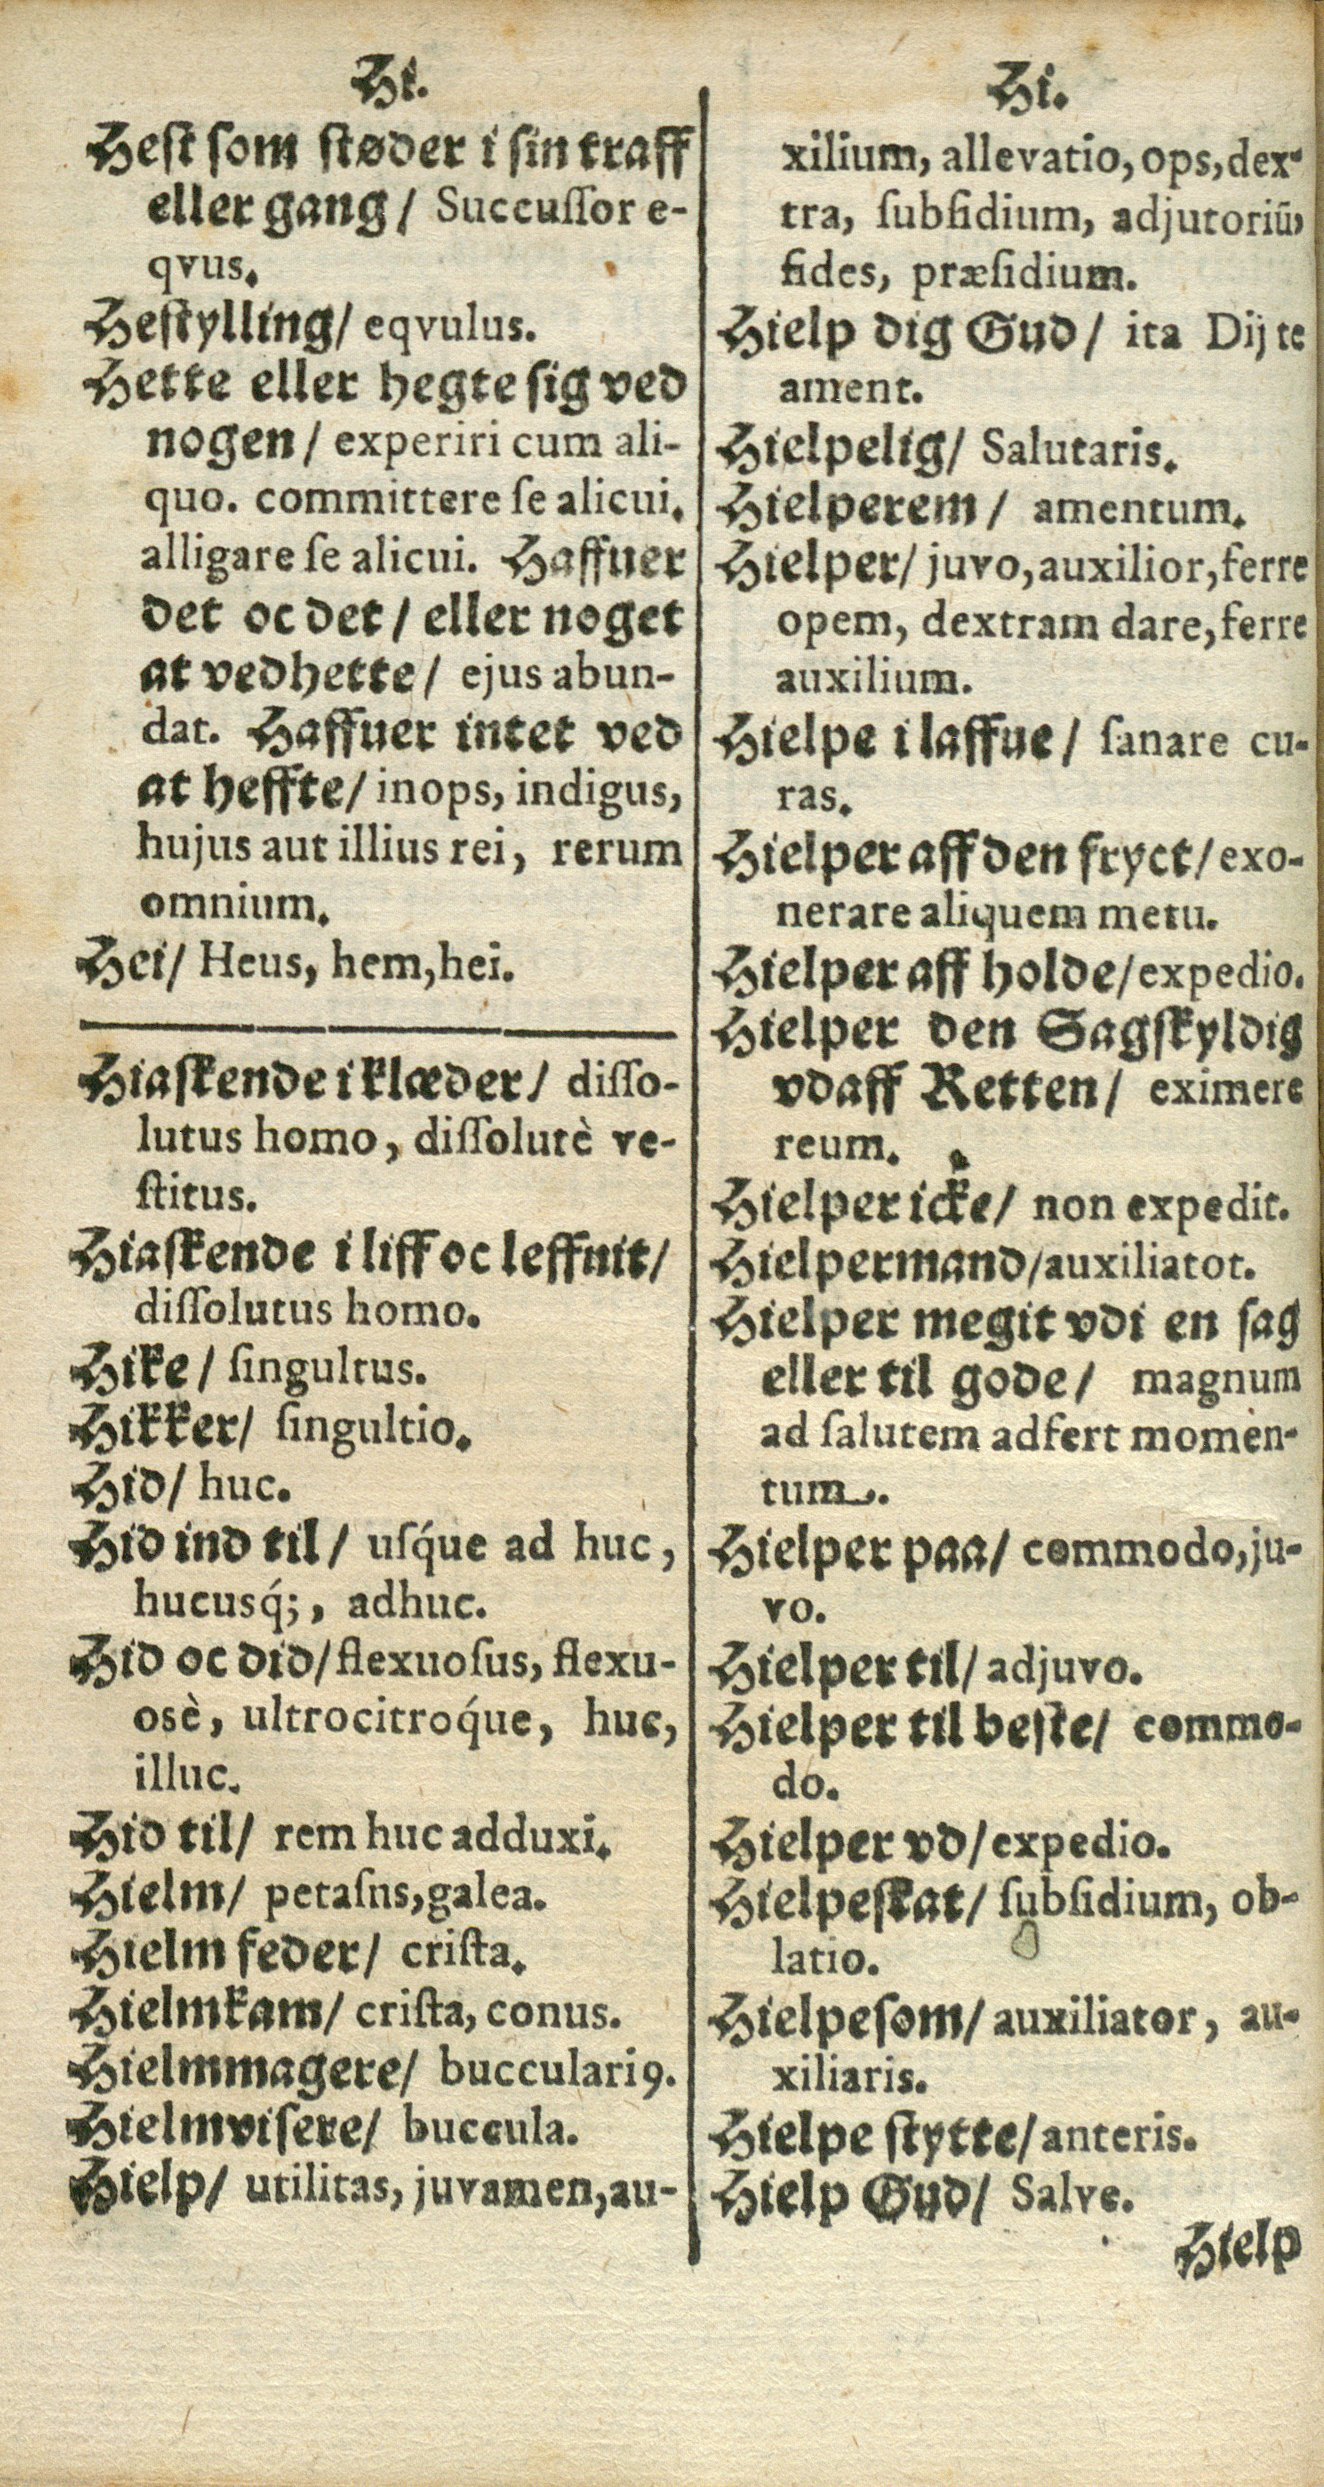 Hi.
Hest som støder i sin traff
eller gang / Succuſſor e-
qvus.
Hestylling / eqvulus.
Hette eller hegte sig ved
nogen / experiri cum ali-
quo. committere ſe alicui.
alligare ſe alicui. Haffuer
det oc det / eller noget
at vedhette / ejus abun-
dat. Haffuer intet ved
at heffte / inops, indigus,
hujus aut illius rei, rerum
omnium.
Hei / Heus, hem, hei.
Hiaskende i klæder / diſſo-
lutus homo, diſſolutè ve-
ſtitus.
Hiaskende i liff oc leffnit /
diſſolutus homo.
Hike / ſingultus.
Hikker / ſingultio.
Hid / huc.
Hid ind til / uſq́ue ad huc,
hucusq́;, adhuc.
Hid oc did / flexuoſus, flexu-
osè, ultrocitroq́ue, huc,
illuc.
Hid til / rem huc adduxi.
Hielm / petaſns, galea.
Hielm feder / criſta.
Hielmkam / criſta, conus.
Hielmmagere / bucculari9.
Hielmvisere / buccula.
Hielp / utilitas, juvamen, au-
Hi.
xilium, allevatio, ops, dex-
tra, ſubſidium, adjutoriū,
fides, præſidium.
Hielp dig Gud / ita Dij te
ament.
Hielpelig / Salutaris.
Hielperem / amentum.
Hielper / juvo, auxilior, ferre
opem, dextram dare, ferre
auxilium.
Hielpe i laffue / ſanare cu-
ras.
Hielper aff den fryct / exo-
nerare aliquem metu.
Hielper aff holde / expedio.
Hielper den Sagskyldig
vdaff Retten / eximere
reum.
Hielper icke / non expedit.
Hielpermand / auxiliatot.
Hielper megit vdi en sag
eller til gode / magnum
ad ſalutem adfert momèn-
tum.
Hielper paa / commodo, ju-
vo.
Hielper til / adjuvo.
Hielper til beste / commo-
do.
Hielper vd / expedio.
Hielpeskat / ſubſidium, ob-
latio.
Hielpesom / auxiliator, au-
xiliaris.
Hielpe stytte / anteris.
Hielp Gud / Salve.
Hielp